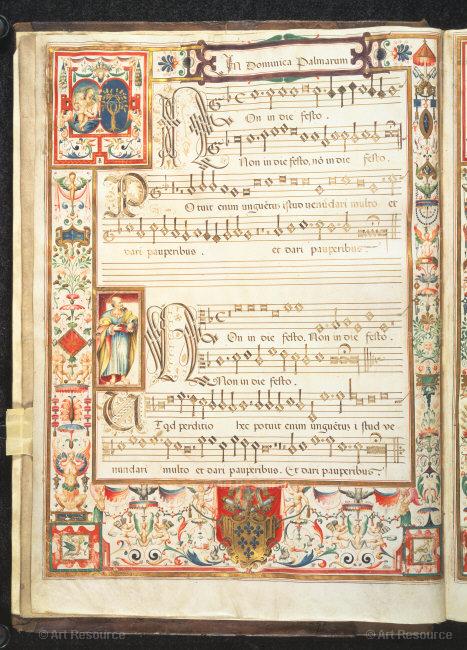 In Dominica Palmarum
Non in die festo.
Non in die festo, nō in die festo.
Potuit enim unguētū istud uenūdari multo et
dari pauperibus. et dari pauperibus
Non in die festo. Non in die festo.
Non in die festo.
Utqd perditio hec potuit enim unguētū i stud ve
nundari multo et dari pauperibus. Et dari pauperibus.
© Art Resource
© Art Resource